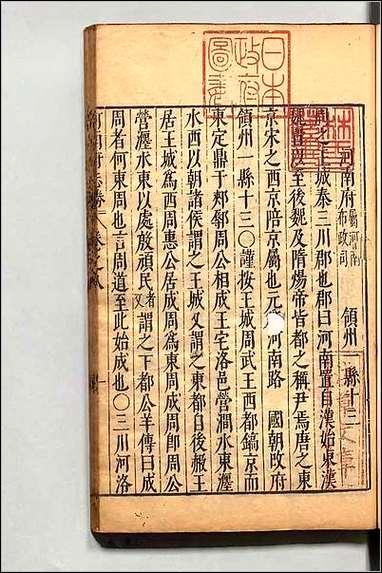 日本
政府
圖書
河南府 屬河南布政司 領州一縣十三
周之王城秦三川郡也郡曰河南置自漢始東漢
魏晉以至後魏及隋煬帝皆都之稱尹焉唐之東
京宋之西京陪京屬也元 河南路 國朝改府
領州一縣十三○謹按王城周武王西都鎬京而
東定鼎于郟鄏周公相成王宅洛邑營澗水東瀍
水西以朝諸侯謂之王城又謂之東都自後赧王
居王城爲西周惠公居成周爲東周成周即周公
營瀍水東以處放頑民者又謂之下都公羊傳曰成
周者何東周也言周道至此始成也○三川河洛